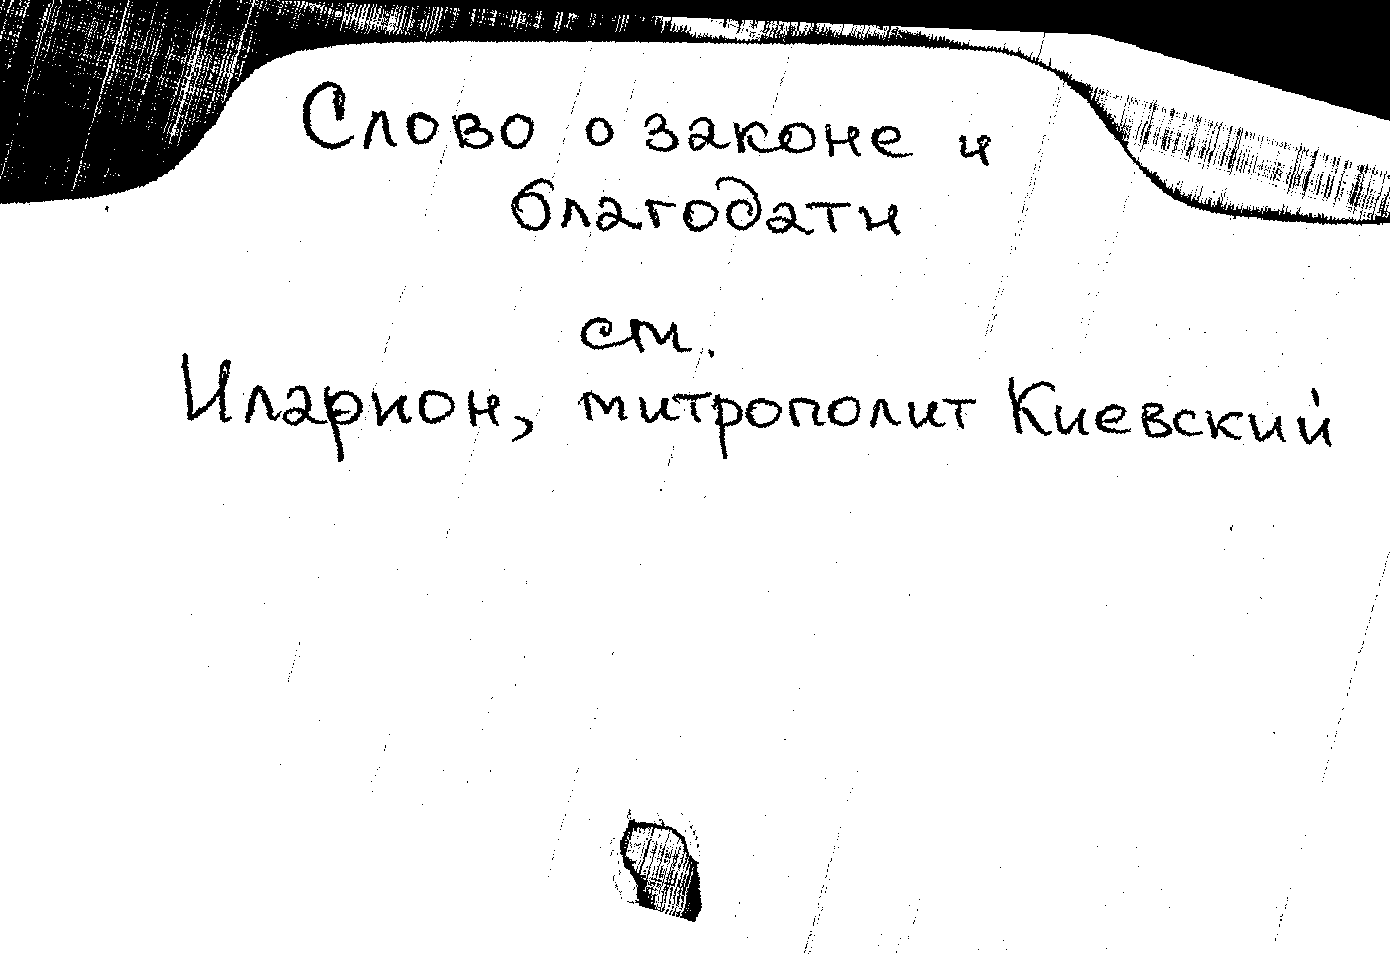 Слово о законе и
благодати
см.
Иларион, митрополит Киевский